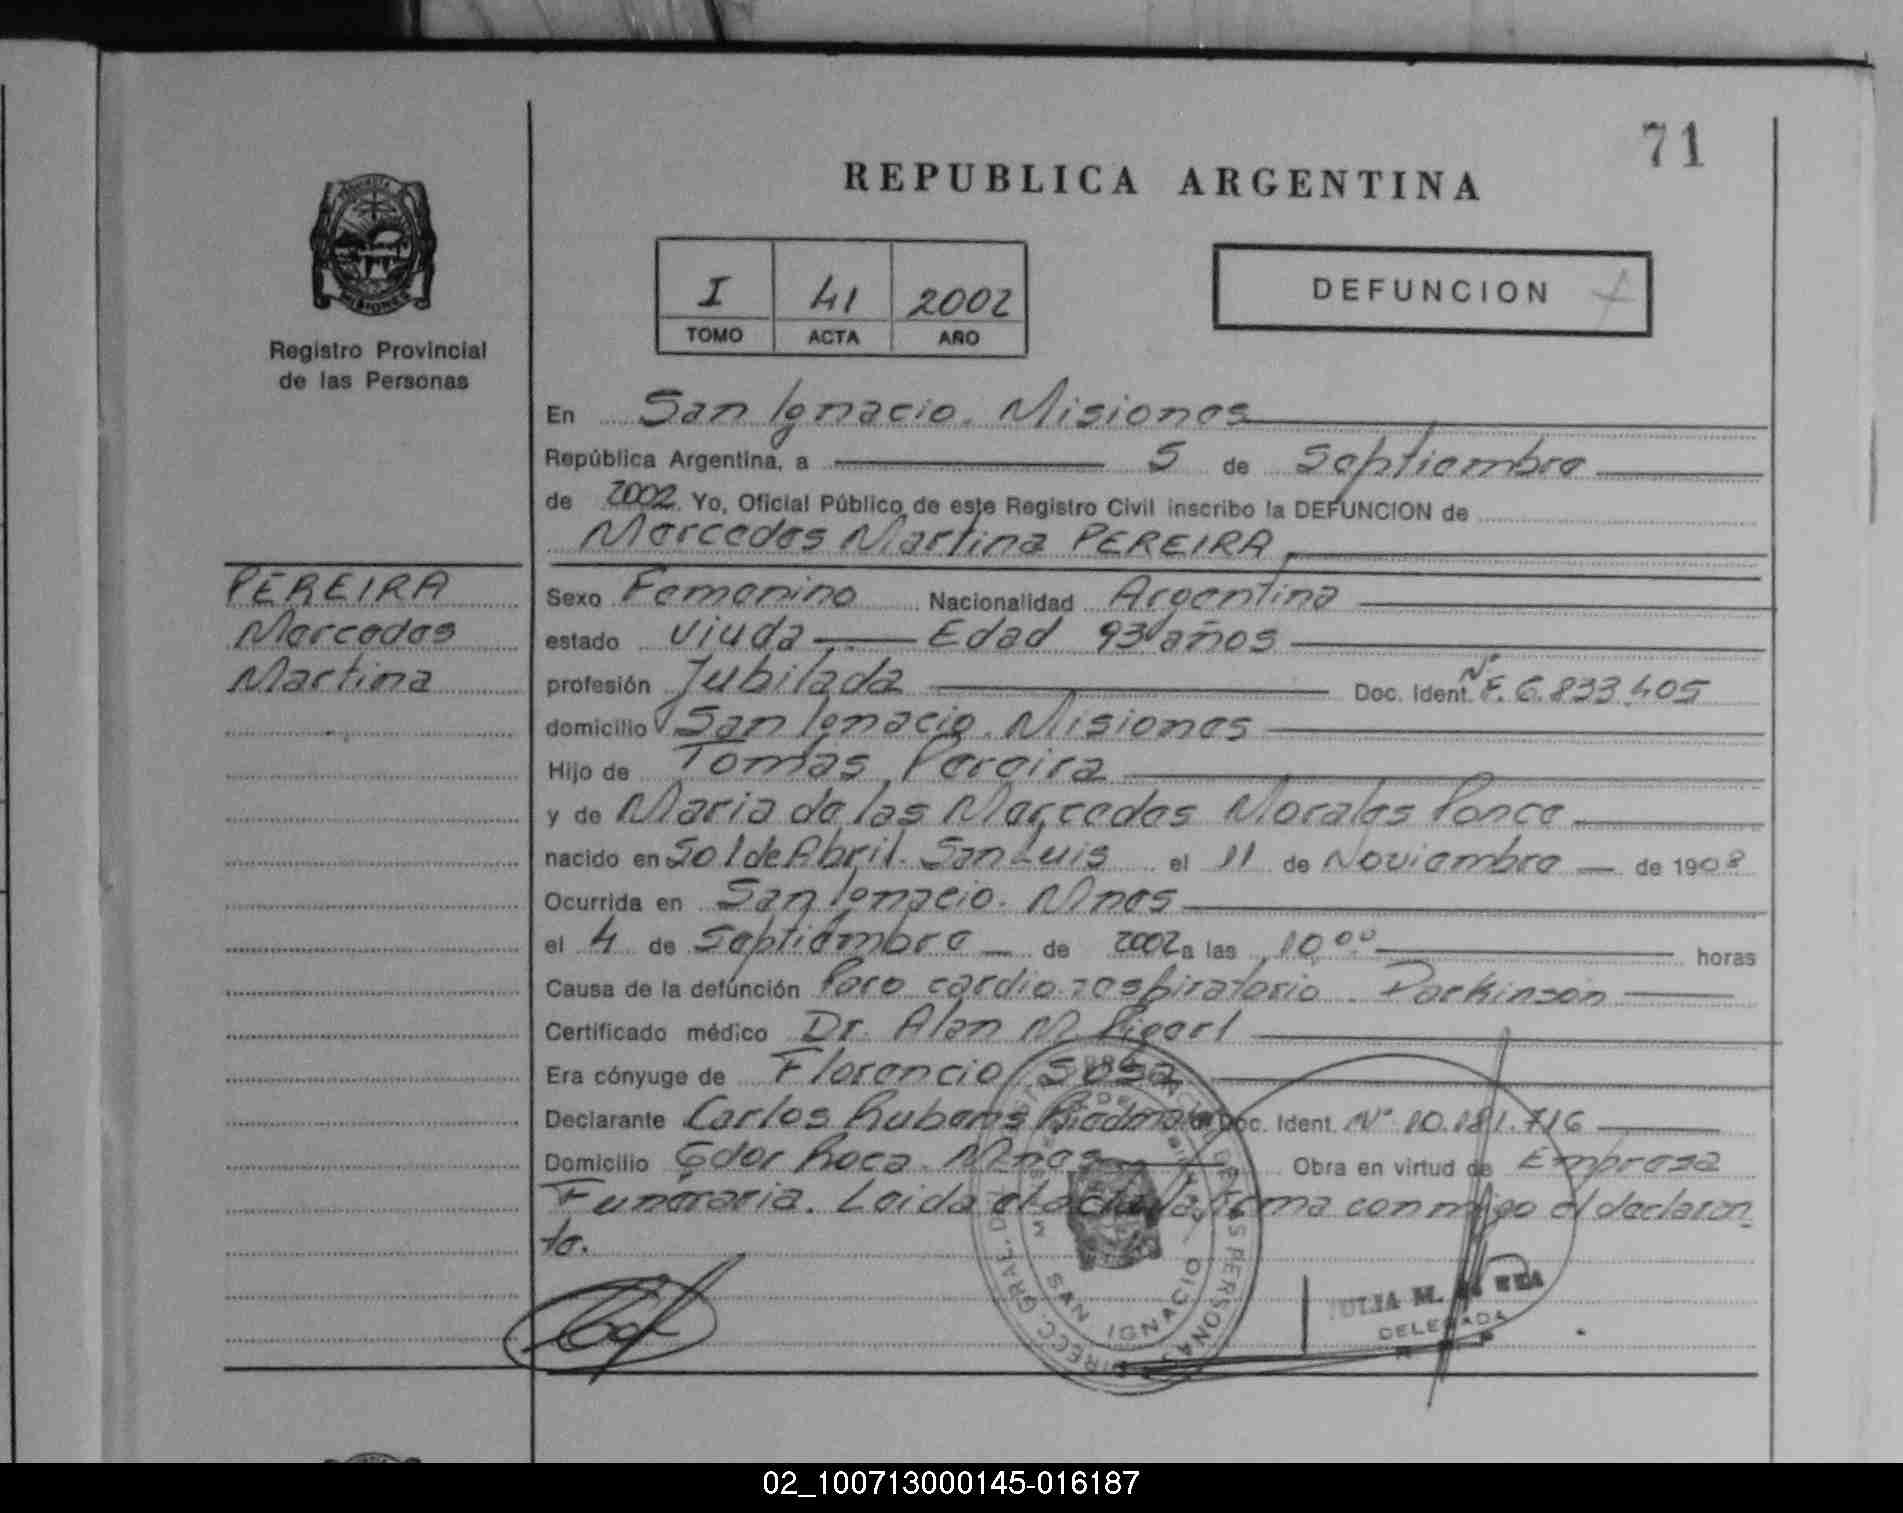 71
REPUBLICA ARGENTINA
I 41 2002
TOMO ACTA AÑO
DEFUNCION
MISIONES
Registro Provincial
de las Personas
En San Ignacio. Misiones
República Argentina, a 5 de Septiembre
de 2002. Yo, Oficial Público de este Registro Civil inscribo la DEFUNCION de
Mercedes Martina PEREIRA
PEREIRA
Mercedes
Martina
Sexo Femenino Nacionalidad Argentina
estado Viuda Edad 93 años
profesión Jubilada Doc. Ident. Nº F. 6.833.405
domicilio San Ignacio. Misiones
Hijo de Tomás Pereira
y de Maria de las Mercedes Morales Ponce
nacido en Sol de Abril. San Luis el 11 de Noviembre de 1908
Ocurrida en San Ignacio. Mnes
el 4 de Septiembre de 2002 a las 10,00 horas
Causa de la defunción Paro cardio respiratorio. Parkinson
Certificado médico Dr. Alan M.
Era cónyuge de Florencio Sosa
Declarante Carlos Rubens Doc. Ident. Nº 10.181.716
Domicilio Gdor Roca. Mnes Obra en virtud de Empresa
Funeraria. Leida el acta la firma conmigo el declaran
te.
DIRECC. GRAL. DE LAS PERSONAS
SAN IGNACIO
JULIA M.
DELEGADA
02_100713000145-016187